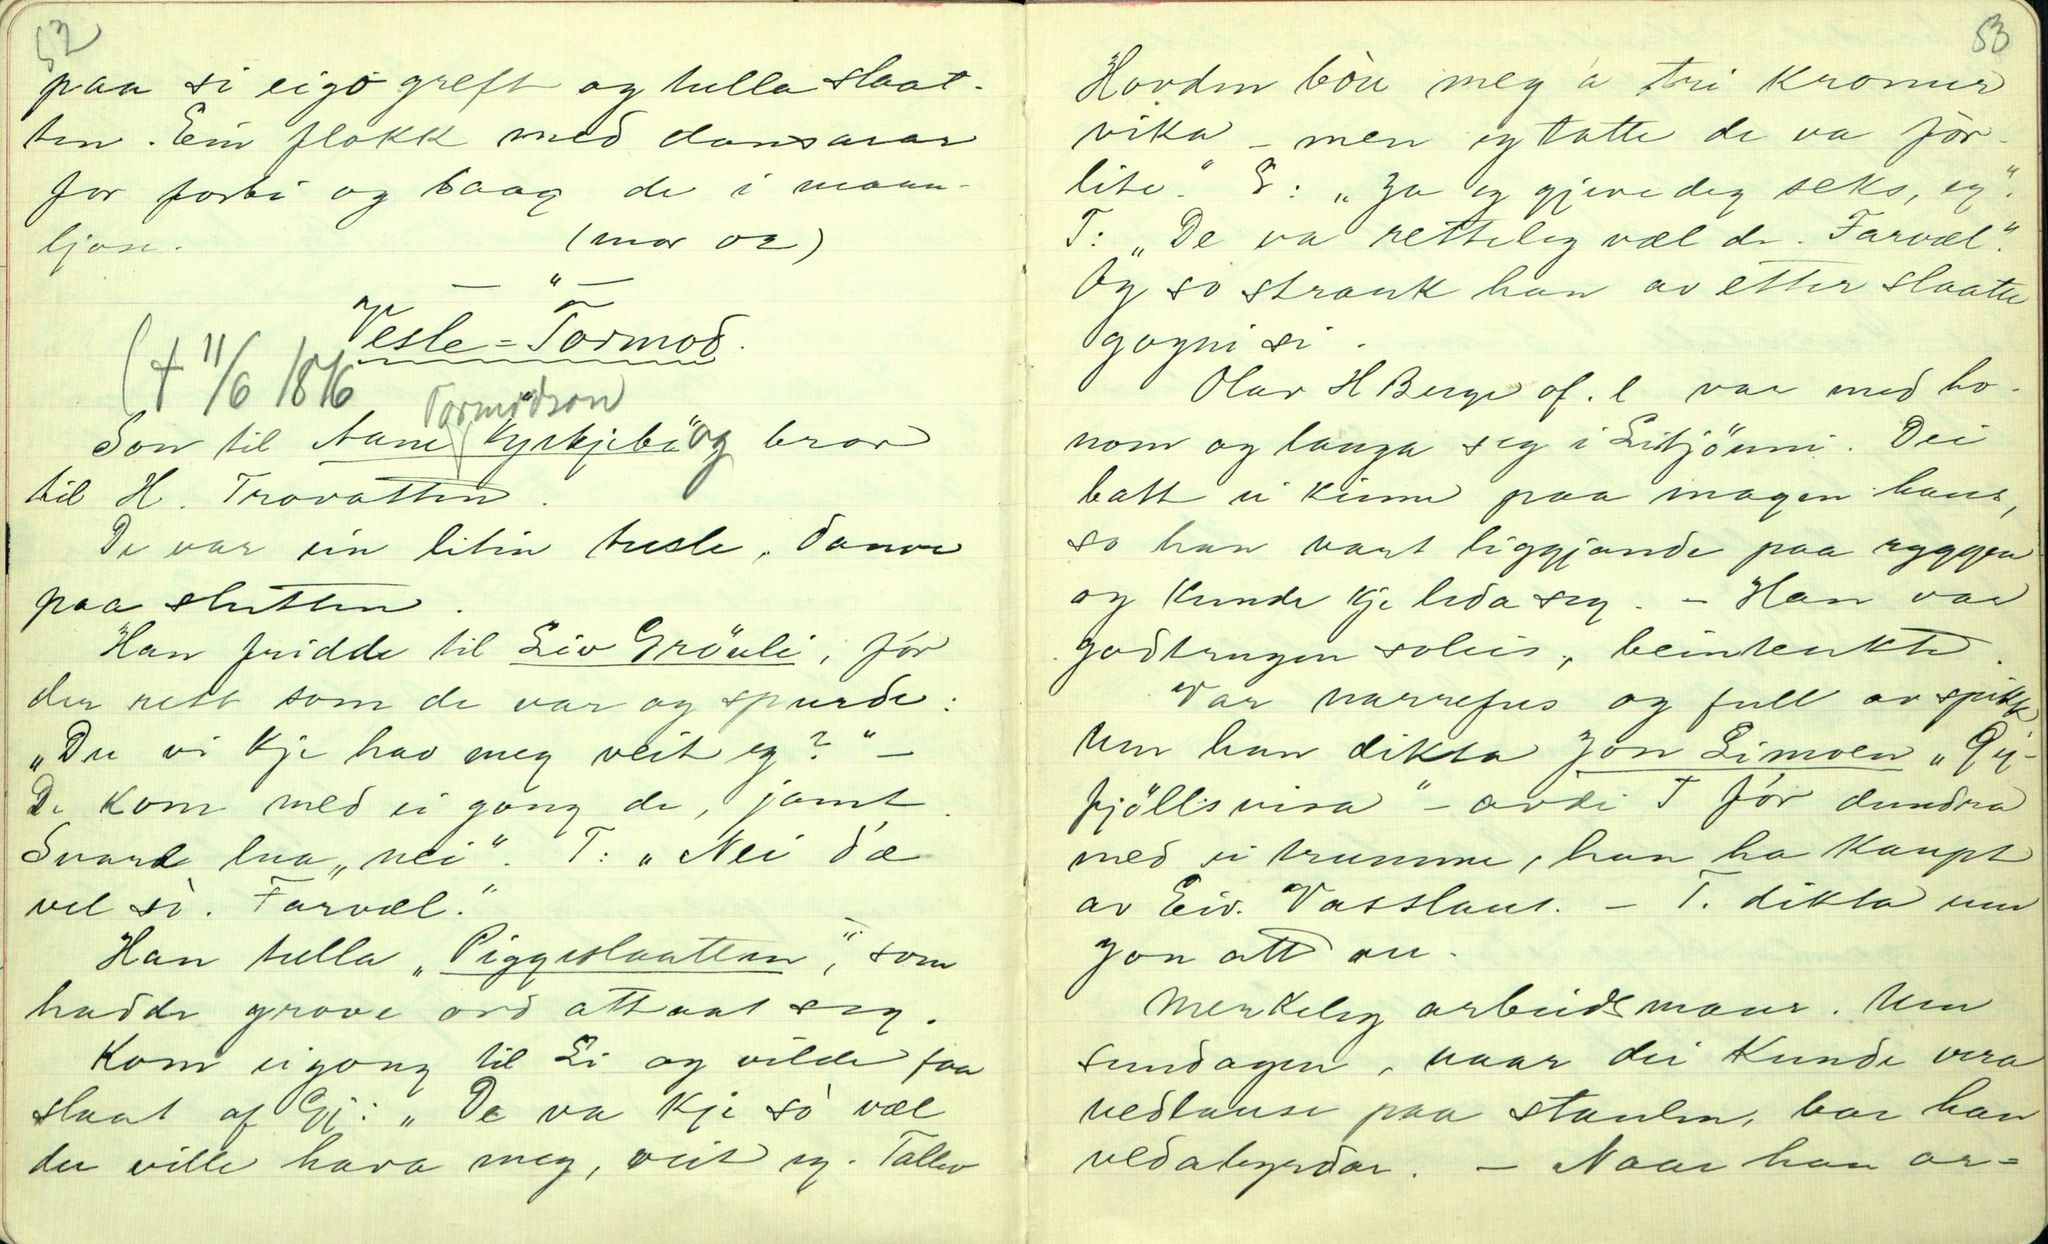 52
paa si eigo greft og tulla slaat-
ten. Ein flokk med dansarar
for forbi og saag de i maan-
ljose. (mor oa)
— " —
Vesle-Tormod.
(† 11/6 1876
Tormodson
Son til Aane Kyrkjebø og bror
til H. Trovatten.
De var ein liten tusle, danor
paa slutten.
Han fridde til Liv Gröuli, fór
der rett som de var og spurde:
„Du vi kje hav meg veit eg?" —
De kom med ei gong de, jamt.
Svara hua „nei". T: „Nei d'æ
vel sò. Farvæl."
Han tulla „Piggeslaatten", som
hadde grove ord attaat seg.
Kom eigong til Li og vilde faa
slaat af Gj: „De va kje sò væl
du ville hava meg, veit eg. Tallev
53
Hovden bòu meg à tri kronur
vika – men eg tatte de va fòr-
lite." G: „Ja eg gjeve deg seks, eg".
T: „De va retteleg væl de. Farvæl".
Og so strauk han av etter slaatte
gogni si.
Olav H Berge of. l var med ho-
nom og lauga seg i Litjönni. Dei
batt ei kinne paa magen hans,
so han vart liggjande paa ryggen
og kunde kje leda seg. – Han var
godtrugen soleis, beintenkte.
Var narrefus og full av spikk
Um han dikta Jon Limoen „Gy-
fjöllsvisa" – avdi T fór dundra
med ei trumme, han ha kaupt
av Eiv. Vasslaus. – T. dikta um
Jon att au.
Merkeleg arbeidsmann. Um
sundagen, naar dei kunde vera
vedlause paa staulen, bar han
vedabyrdar. – Naar han ar-